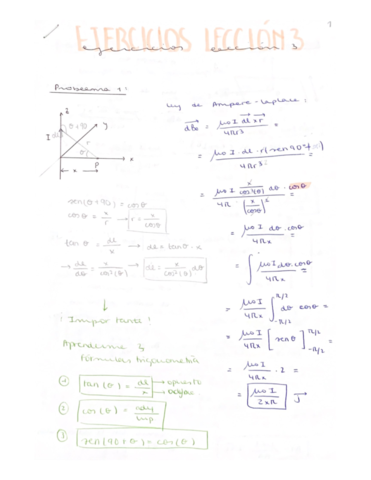 EJERCICIOS LECCIÓN 3
ejercicios lección 3
Problema 1:
Ley de Ampere-Laplace:
I
θ+90
y
I
r
θ
x
P
x
dB = μ₀ I dl x r / 4πr³ =
= μ₀ I · dl · r (sen 90+θ) / 4πr³ =
= μ₀ I / 4π · x / cos²(θ) dθ · cosθ / (x / cosθ)² =
= μ₀ I dθ · cosθ / 4πx =
= ∫ μ₀ I dθ cosθ / 4πx =
= μ₀ I / 4πx ∫ -π/2 π/2 dθ cosθ =
= μ₀ I / 4πx [senθ] π/2 -π/2 =
= μ₀ I / 4πx · 2 =
= μ₀ I / 2πx
sen(θ+90) = cosθ
cosθ = x / r → r = x / cosθ
tanθ = dl / x → dl = tanθ · x
→ dl / dθ = x / cos²(θ) → dl = x / cos²(θ) dθ
¡Importante!
Aprenderme 3
fórmulas trigonometría
① tan(θ) = dl / x → opuesto
② cos(θ) = ady / hip
③ sen(90+θ) = cos(θ)